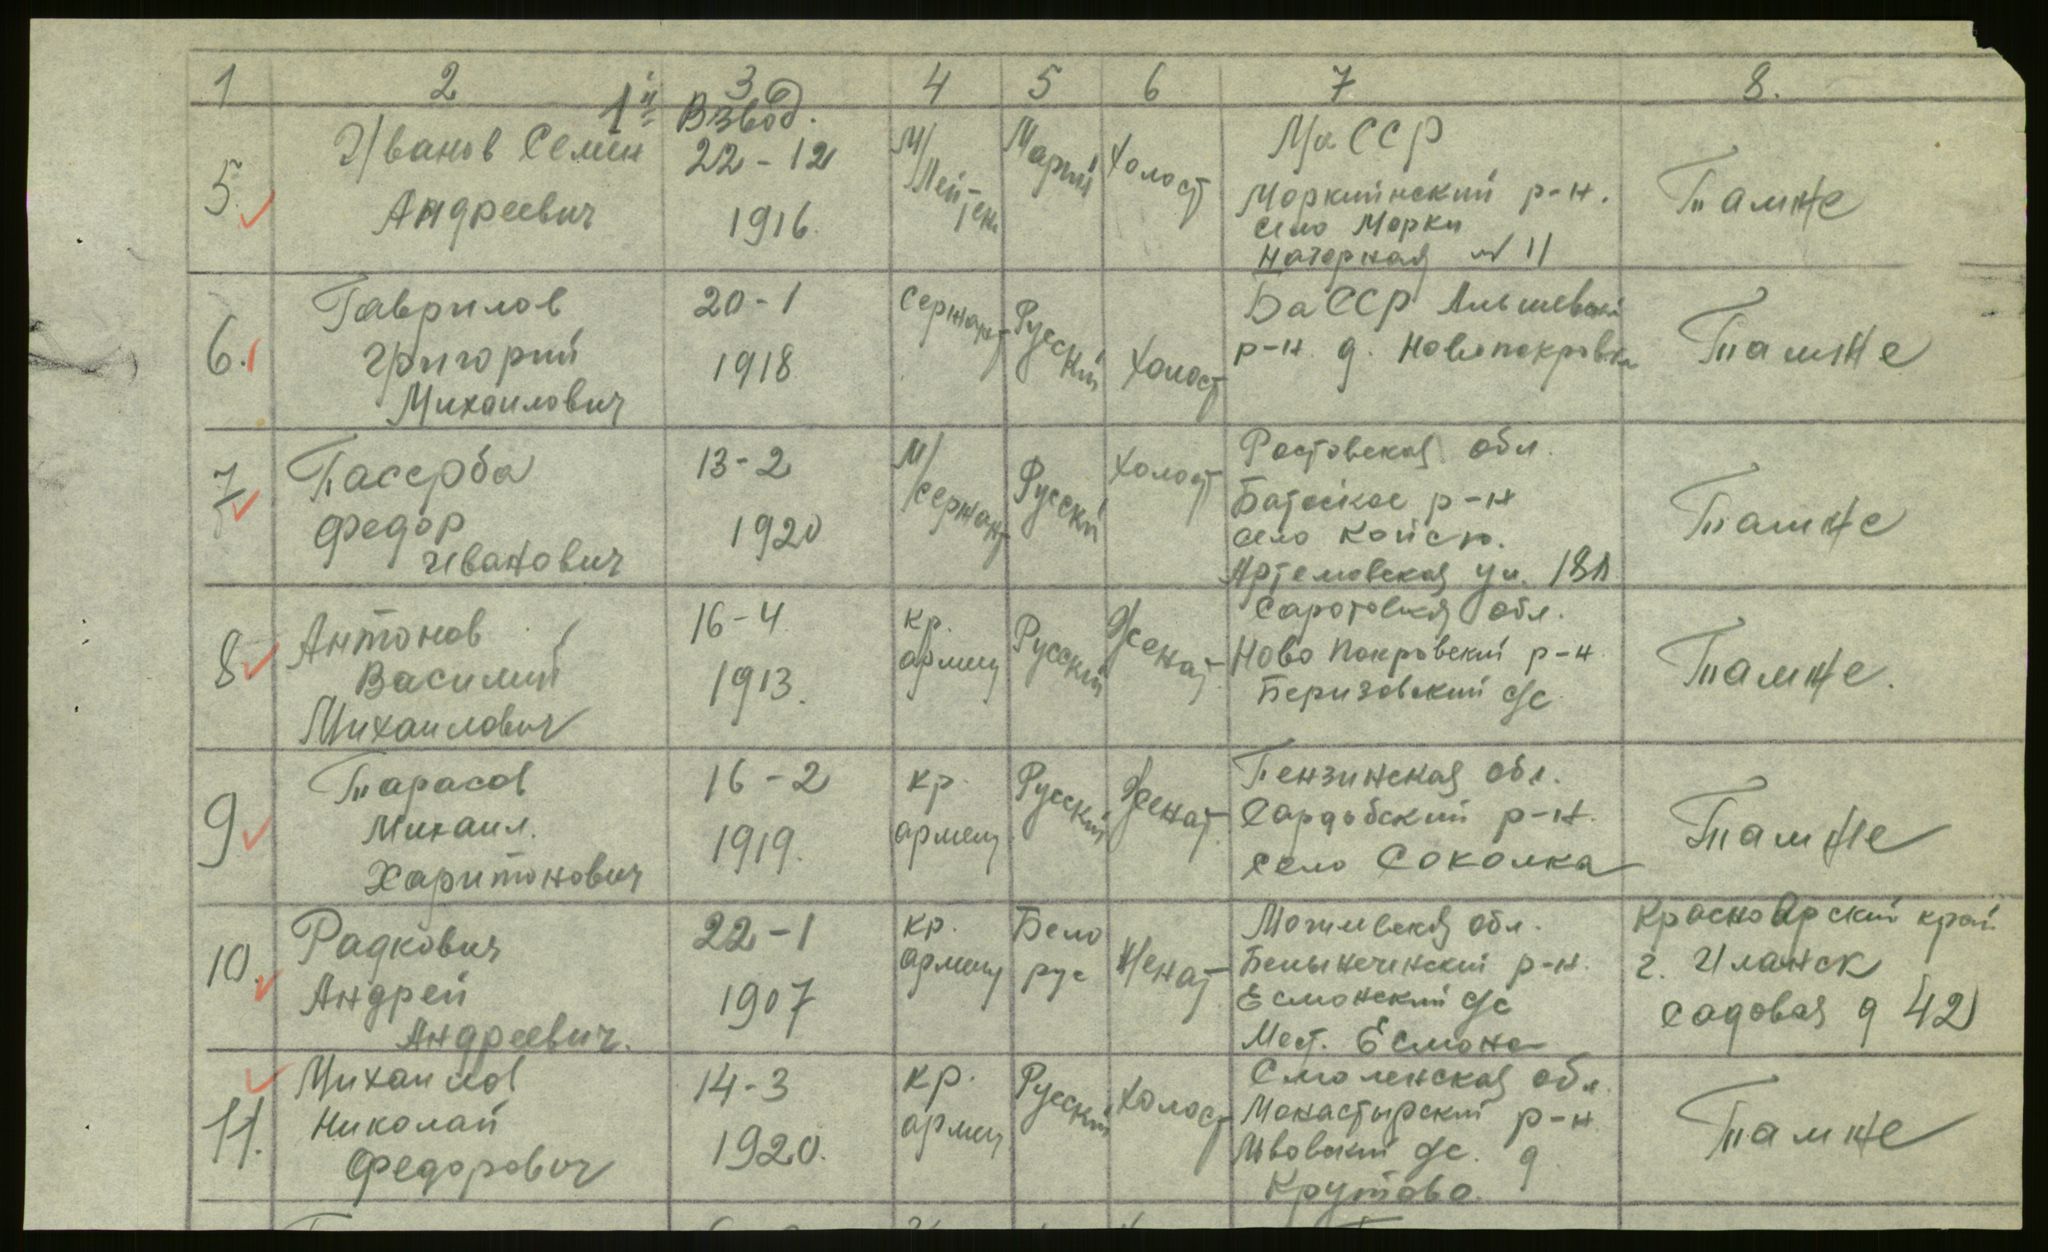 1 2 3 4 5 6 7 8.
1й Взвод.
5. Иванов Семен Андреевич 22-12 1916. М/Лейтен Марий Холост МаССР
Моркинский р-н.
село Морки
№ 11
Тамже
6. Гаврилов Григорий Михаилович 20-1 1918 Сержант Русский Холост БаССР Альшевский
р-н. д. Новопокровка
Тамже
7 Пасерба Федор Иванович 13-2 1920 М/сержант Русский Холост Ростовская обл.
Батайское р-н
село Койсю.
Артемовская ул. 181
Тамже
8 Антонов Василий Михаилович 16-4 1913. кр. армеец Русский Женат Саротовская обл.
Ново Покровский р-н
Беризовский с/с
Тамже.
9 Тарасов Михаил. Харитонович 16-2 1919. кр. армеец Русский Женат Пензинская обл.
Сардобский р-н.
село Соколка
Тамже
10. Радкович Андрей Андреевич. 22-1 1907 кр. армеец Бело рус Женат Могилевская обл.
Белыничинский р-н.
Есмонский с/с
Мест. Есмона
Красноярский край
г. Иланск
Садовая д 42
11. Михаилов Николай Федорович 14-3 1920. кр. армеец Русский Холост Смоленская обл.
Монастырский р-н
Львовский с/с. д
Крутово.
Тамже